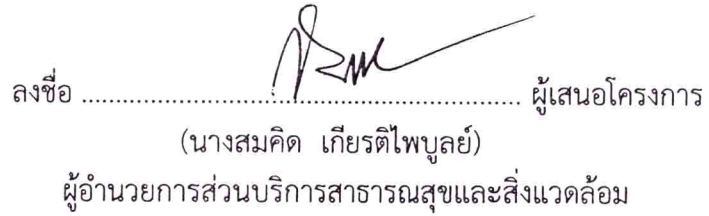 ลงชื่อ ................................................................ ผู้เสนอโครงการ
(นางสมคิด เกียรติไพบูลย์)
ผู้อำนวยการส่วนบริการสาธารณสุขและสิ่งแวดล้อม